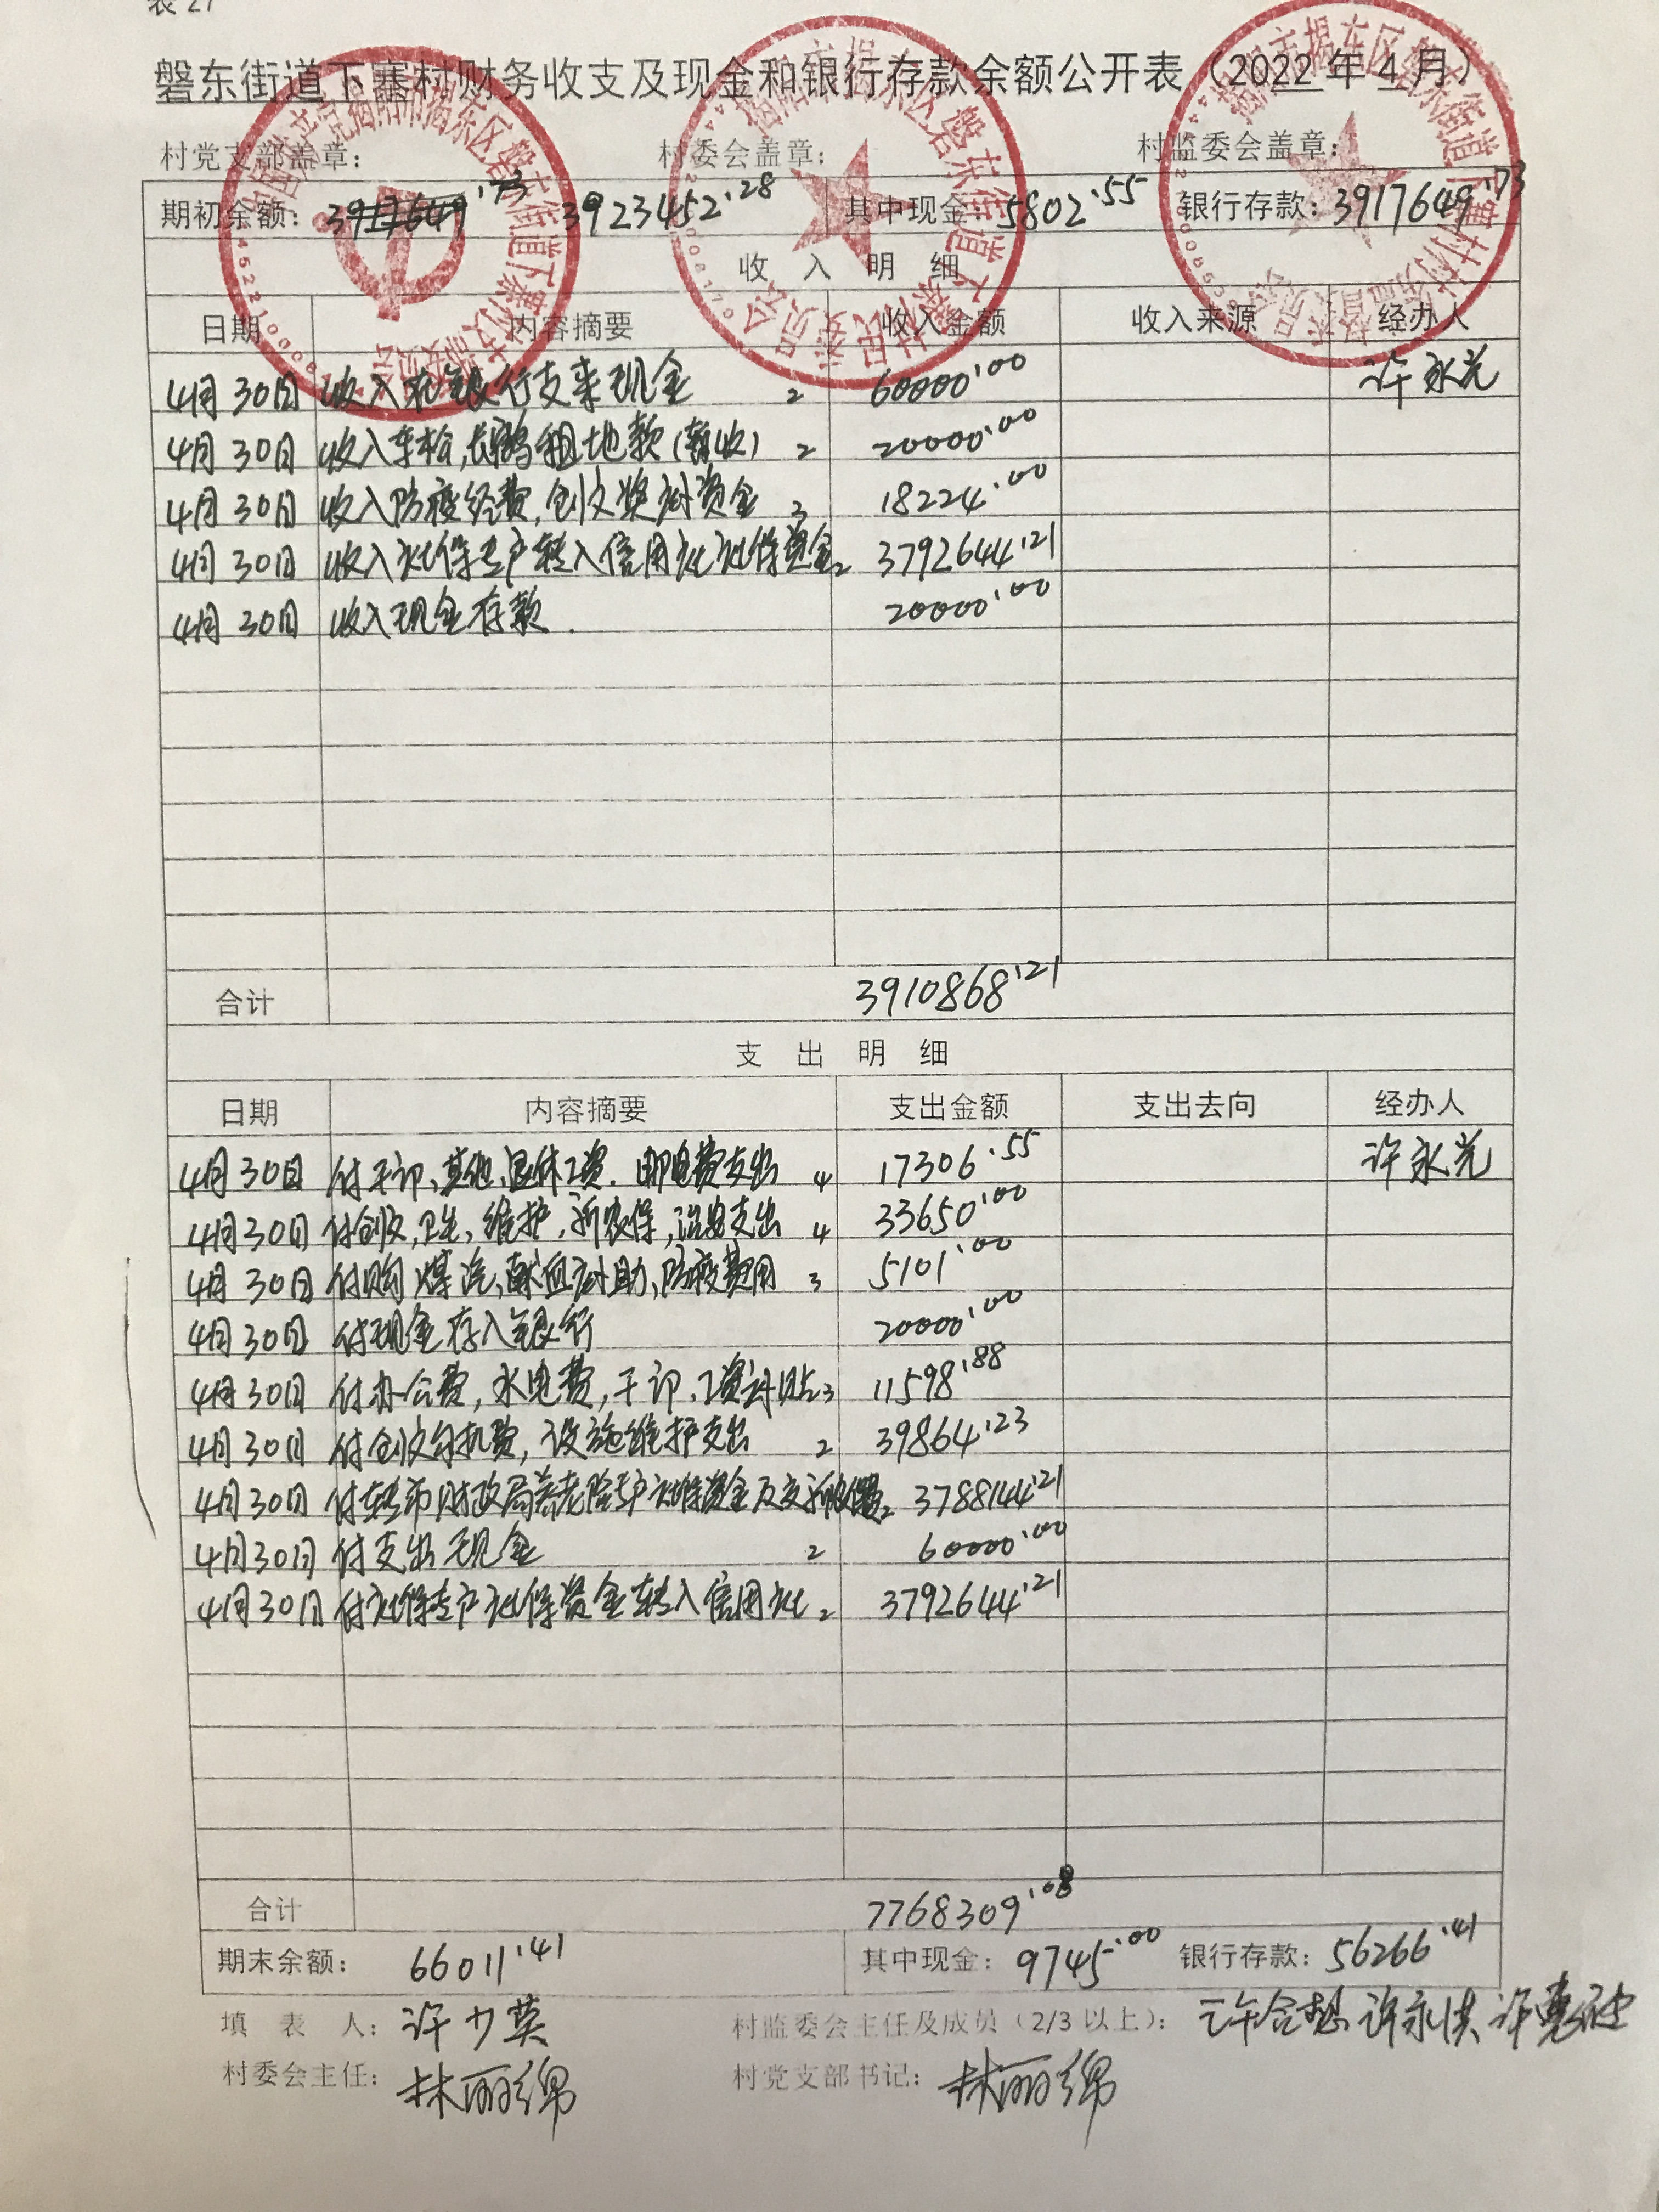 表 27
磐东街道下寨村财务收支及现金和银行存款余额公开表（2022 年 4 月）
村党支部盖章： 村委会盖章： 村监委会盖章：
期初余额： 3917649.73 3923452.28 其中现金：5802.55 银行存款：3917649.73
收 入 明 细
日期 内容摘要 收入金额 收入来源 经办人
4月30日 收入在银行支来现金 2 60000.00 许永光
4月30日 收入车松,长鹏租地款(暂收) 2 20000.00
4月30日 收入防疫经费,创文奖补资金 3 18224.00
4月30日 收入社保专户转入信用社社保资金 2 3792644.21
4月30日 收入现金存款. 20000.00
合计 3910868.21
支 出 明 细
日期 内容摘要 支出金额 支出去向 经办人
4月30日 付干部、其他、退休工资.邮电费支出 4 17306.55 许永光
4月30日 付创文,卫生,维护,新农保,治安支出 4 33650.00
4月30日 付购煤汽、献血补助、防疫费用 3 5101.00
4月30日 付现金存入银行 20000.00
4月30日 付办公费,水电费,干部.工资补贴 3 11598.88
4月30日 付创文勾机费,设施维护支出 2 39864.23
4月30日 付转市财政局养老险专户社保资金及交 2 3788144.21
4月30日 付支出现金 2 60000.00
4月30日 付社保专户社保资金转入信用社 2 3792644.21
合计 7768309.08
期末余额： 66011.41 其中现金：9745.00 银行存款：56266.41
填 表 人：许少英 村监委会主任及成员（2/3 以上）： 许永洪
村委会主任：林丽绵 村党支部书记：林丽绵